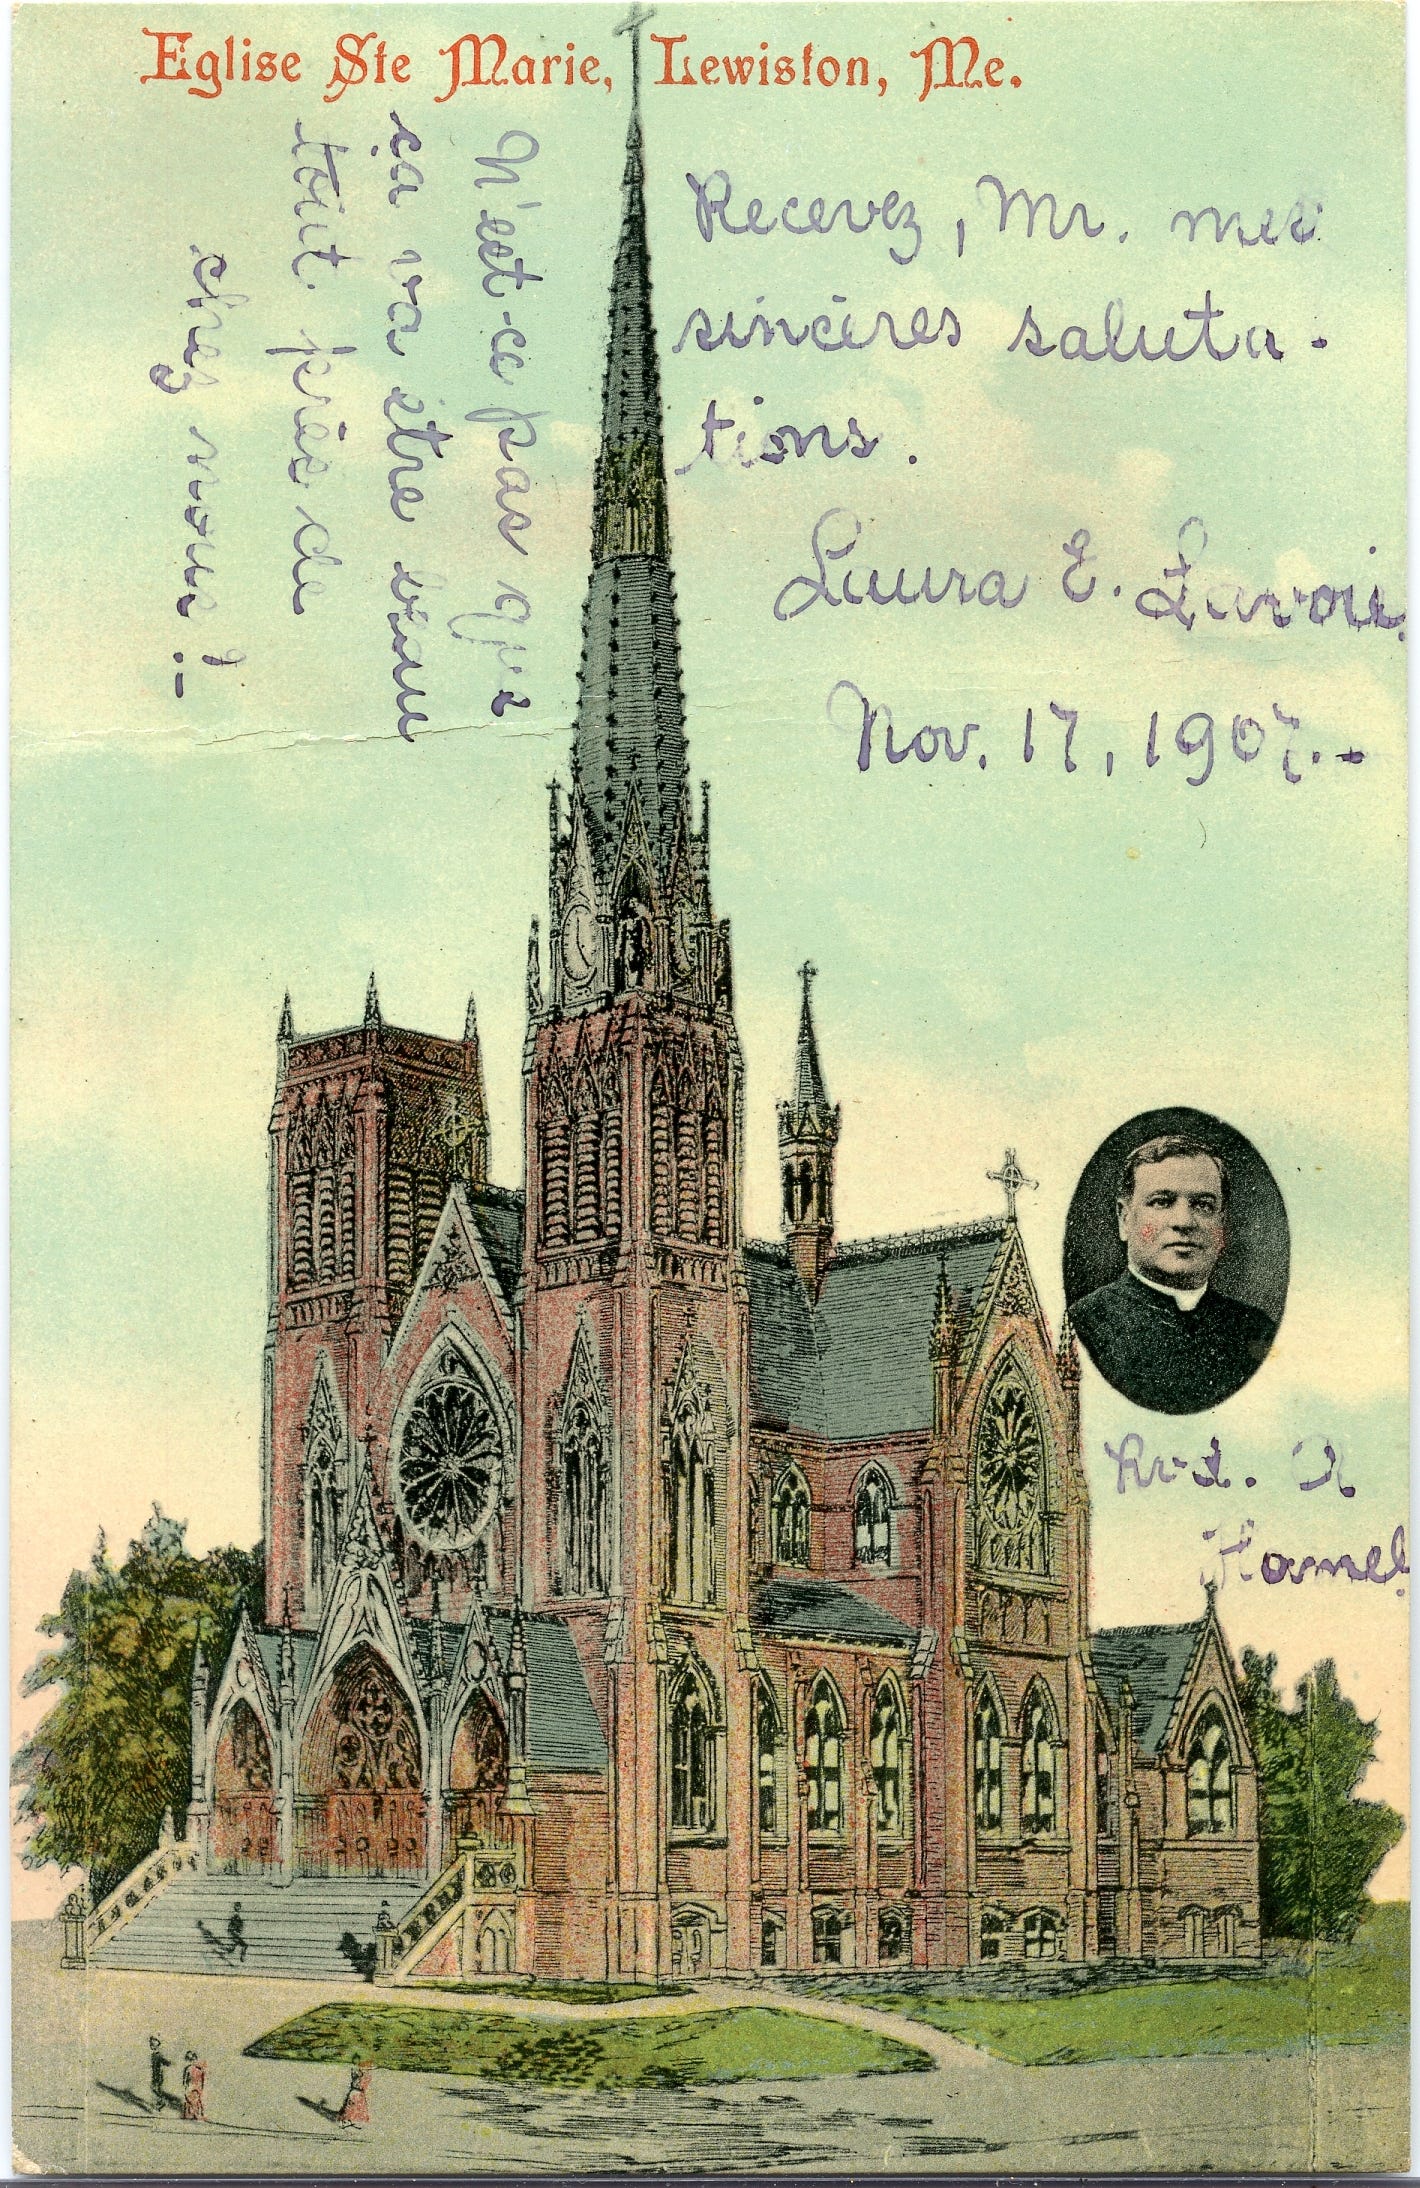 Eglise Ste Marie, Lewiston, Me.
N'est-ce pas que
ça va être beau
tout près de
chez nous!
Recevez, Mr. mes
sincères saluta-
tions.
Laura E. Lavoie.
Nov. 17, 1907.-
Rvd. A
Hamel.